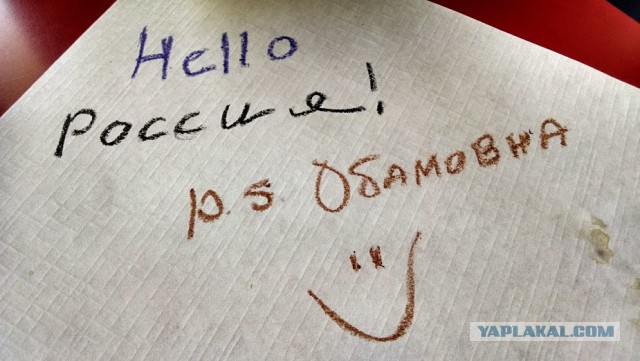 Hello
Россия!
p.s. ОбАМОВНА
YAPLAKAL.COM